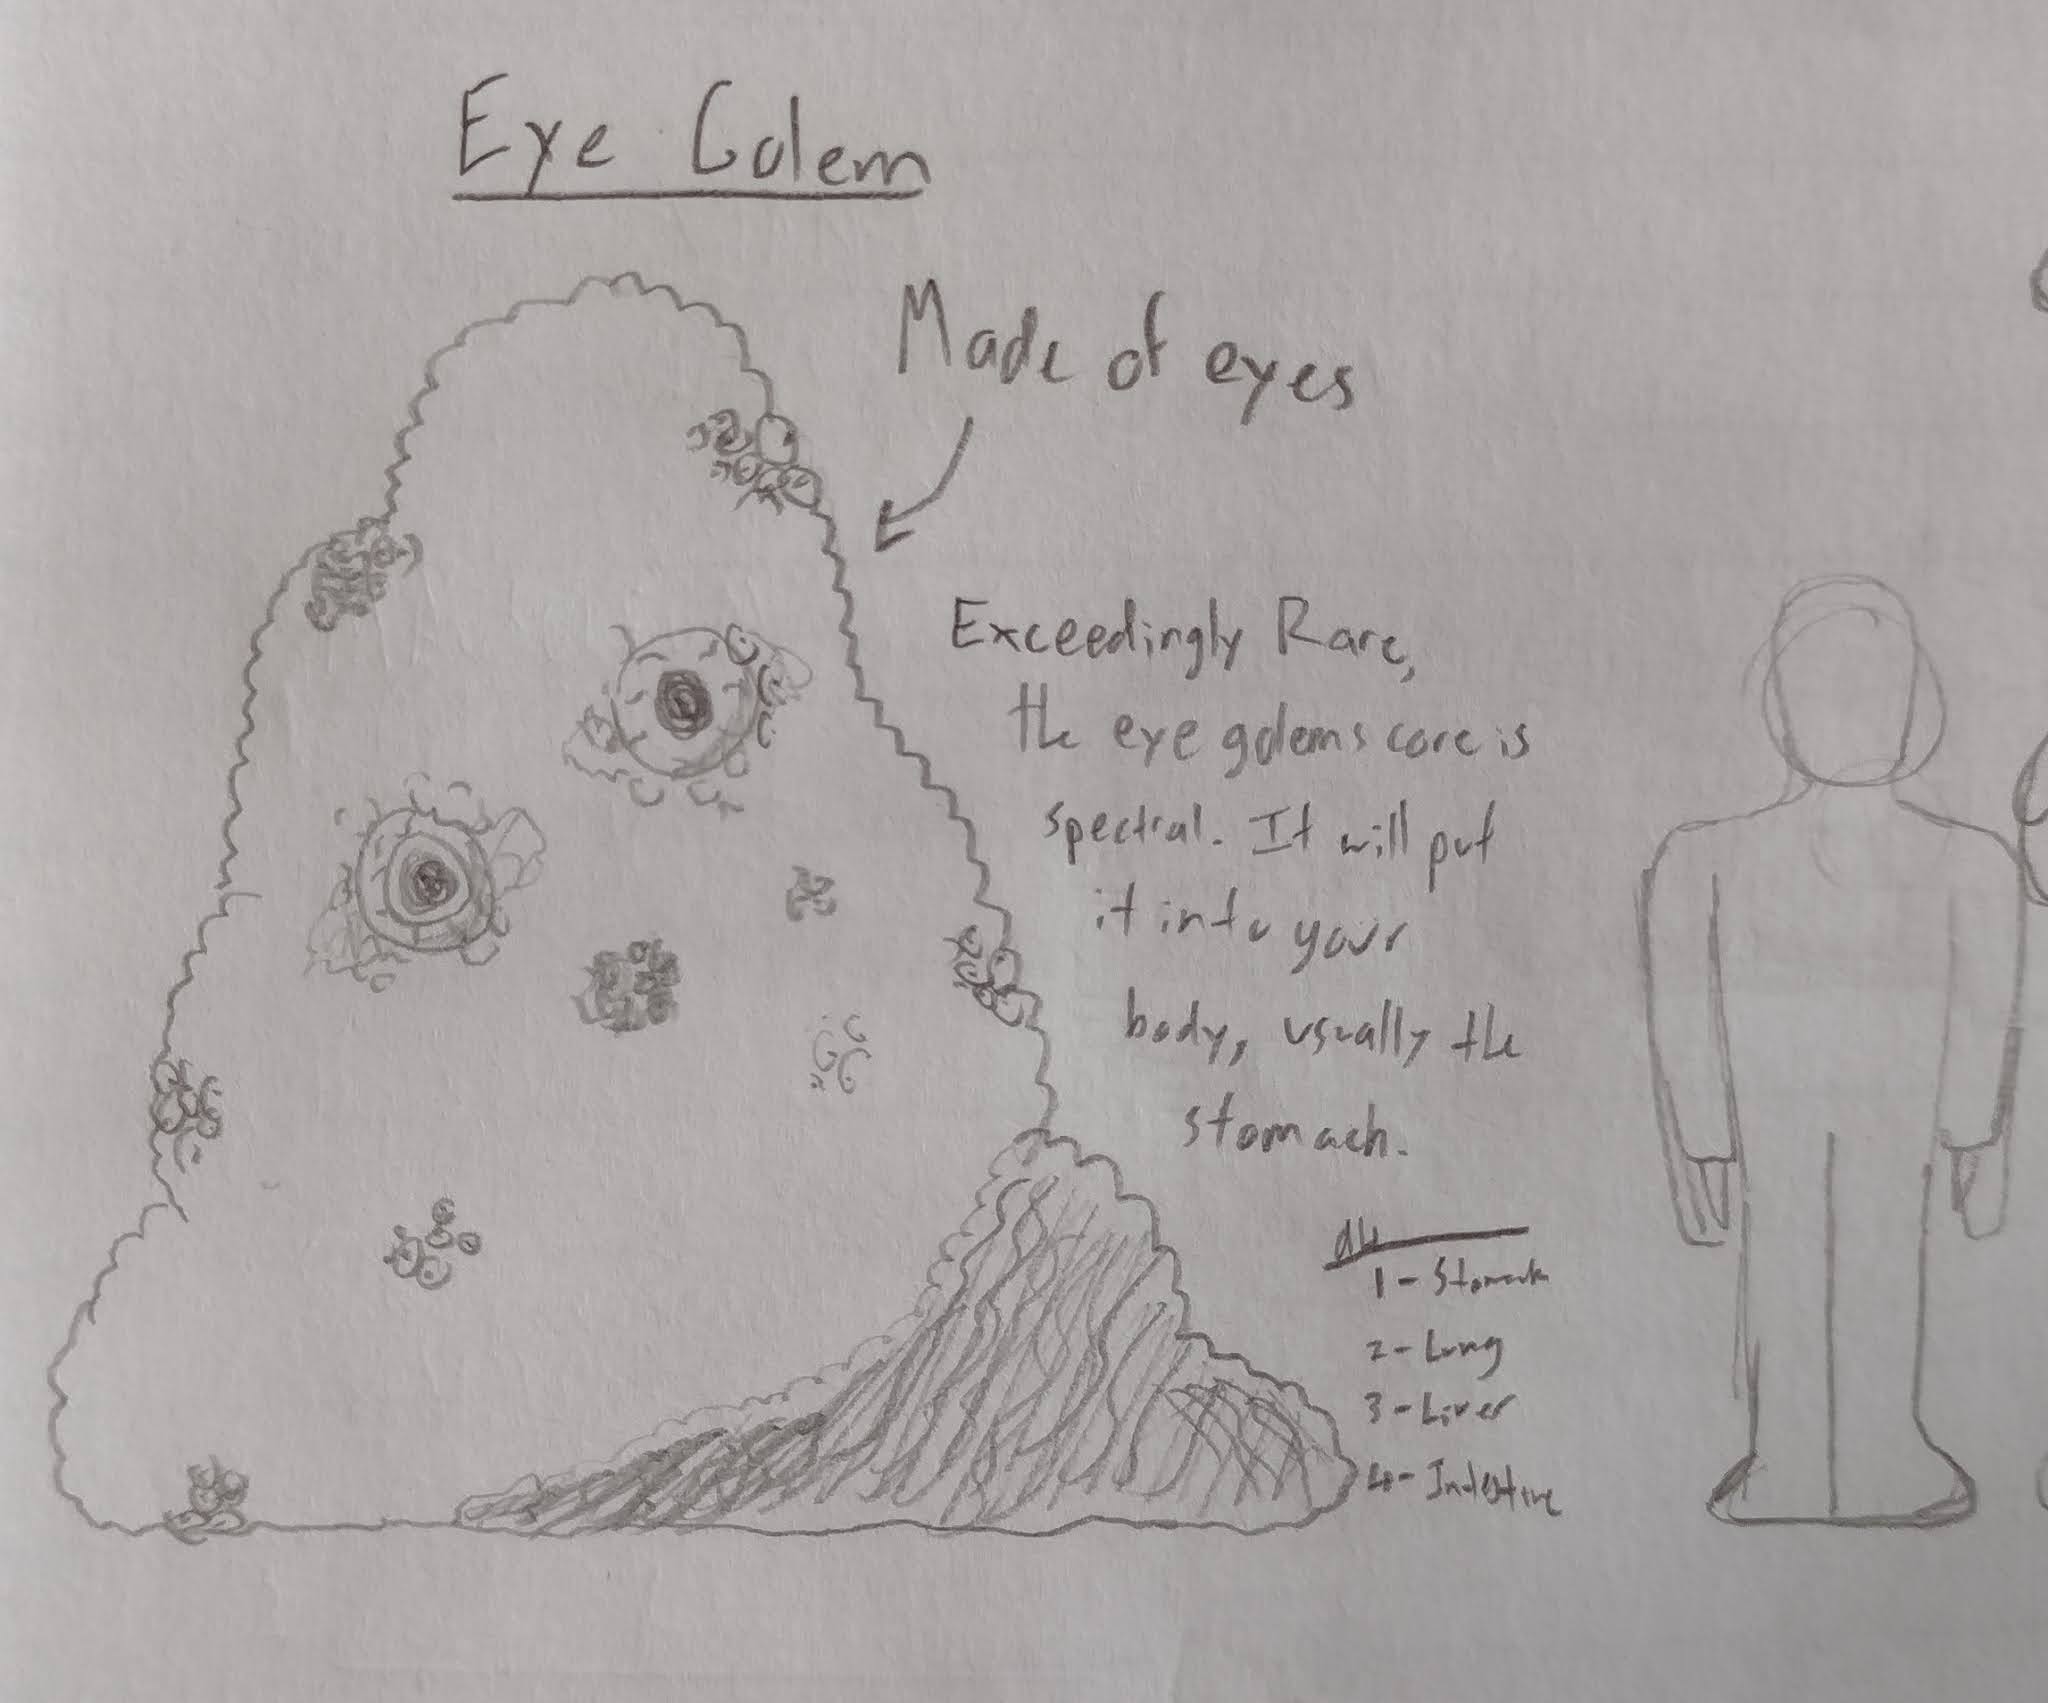 Eye Golem
Made of eyes
Exceedingly Rare,
the eye golems core is
spectral. It will put
it into your
body, usually the
stomach.
d4
1 - Stomach
2 - Lung
3 - Liver
4 - Intestine